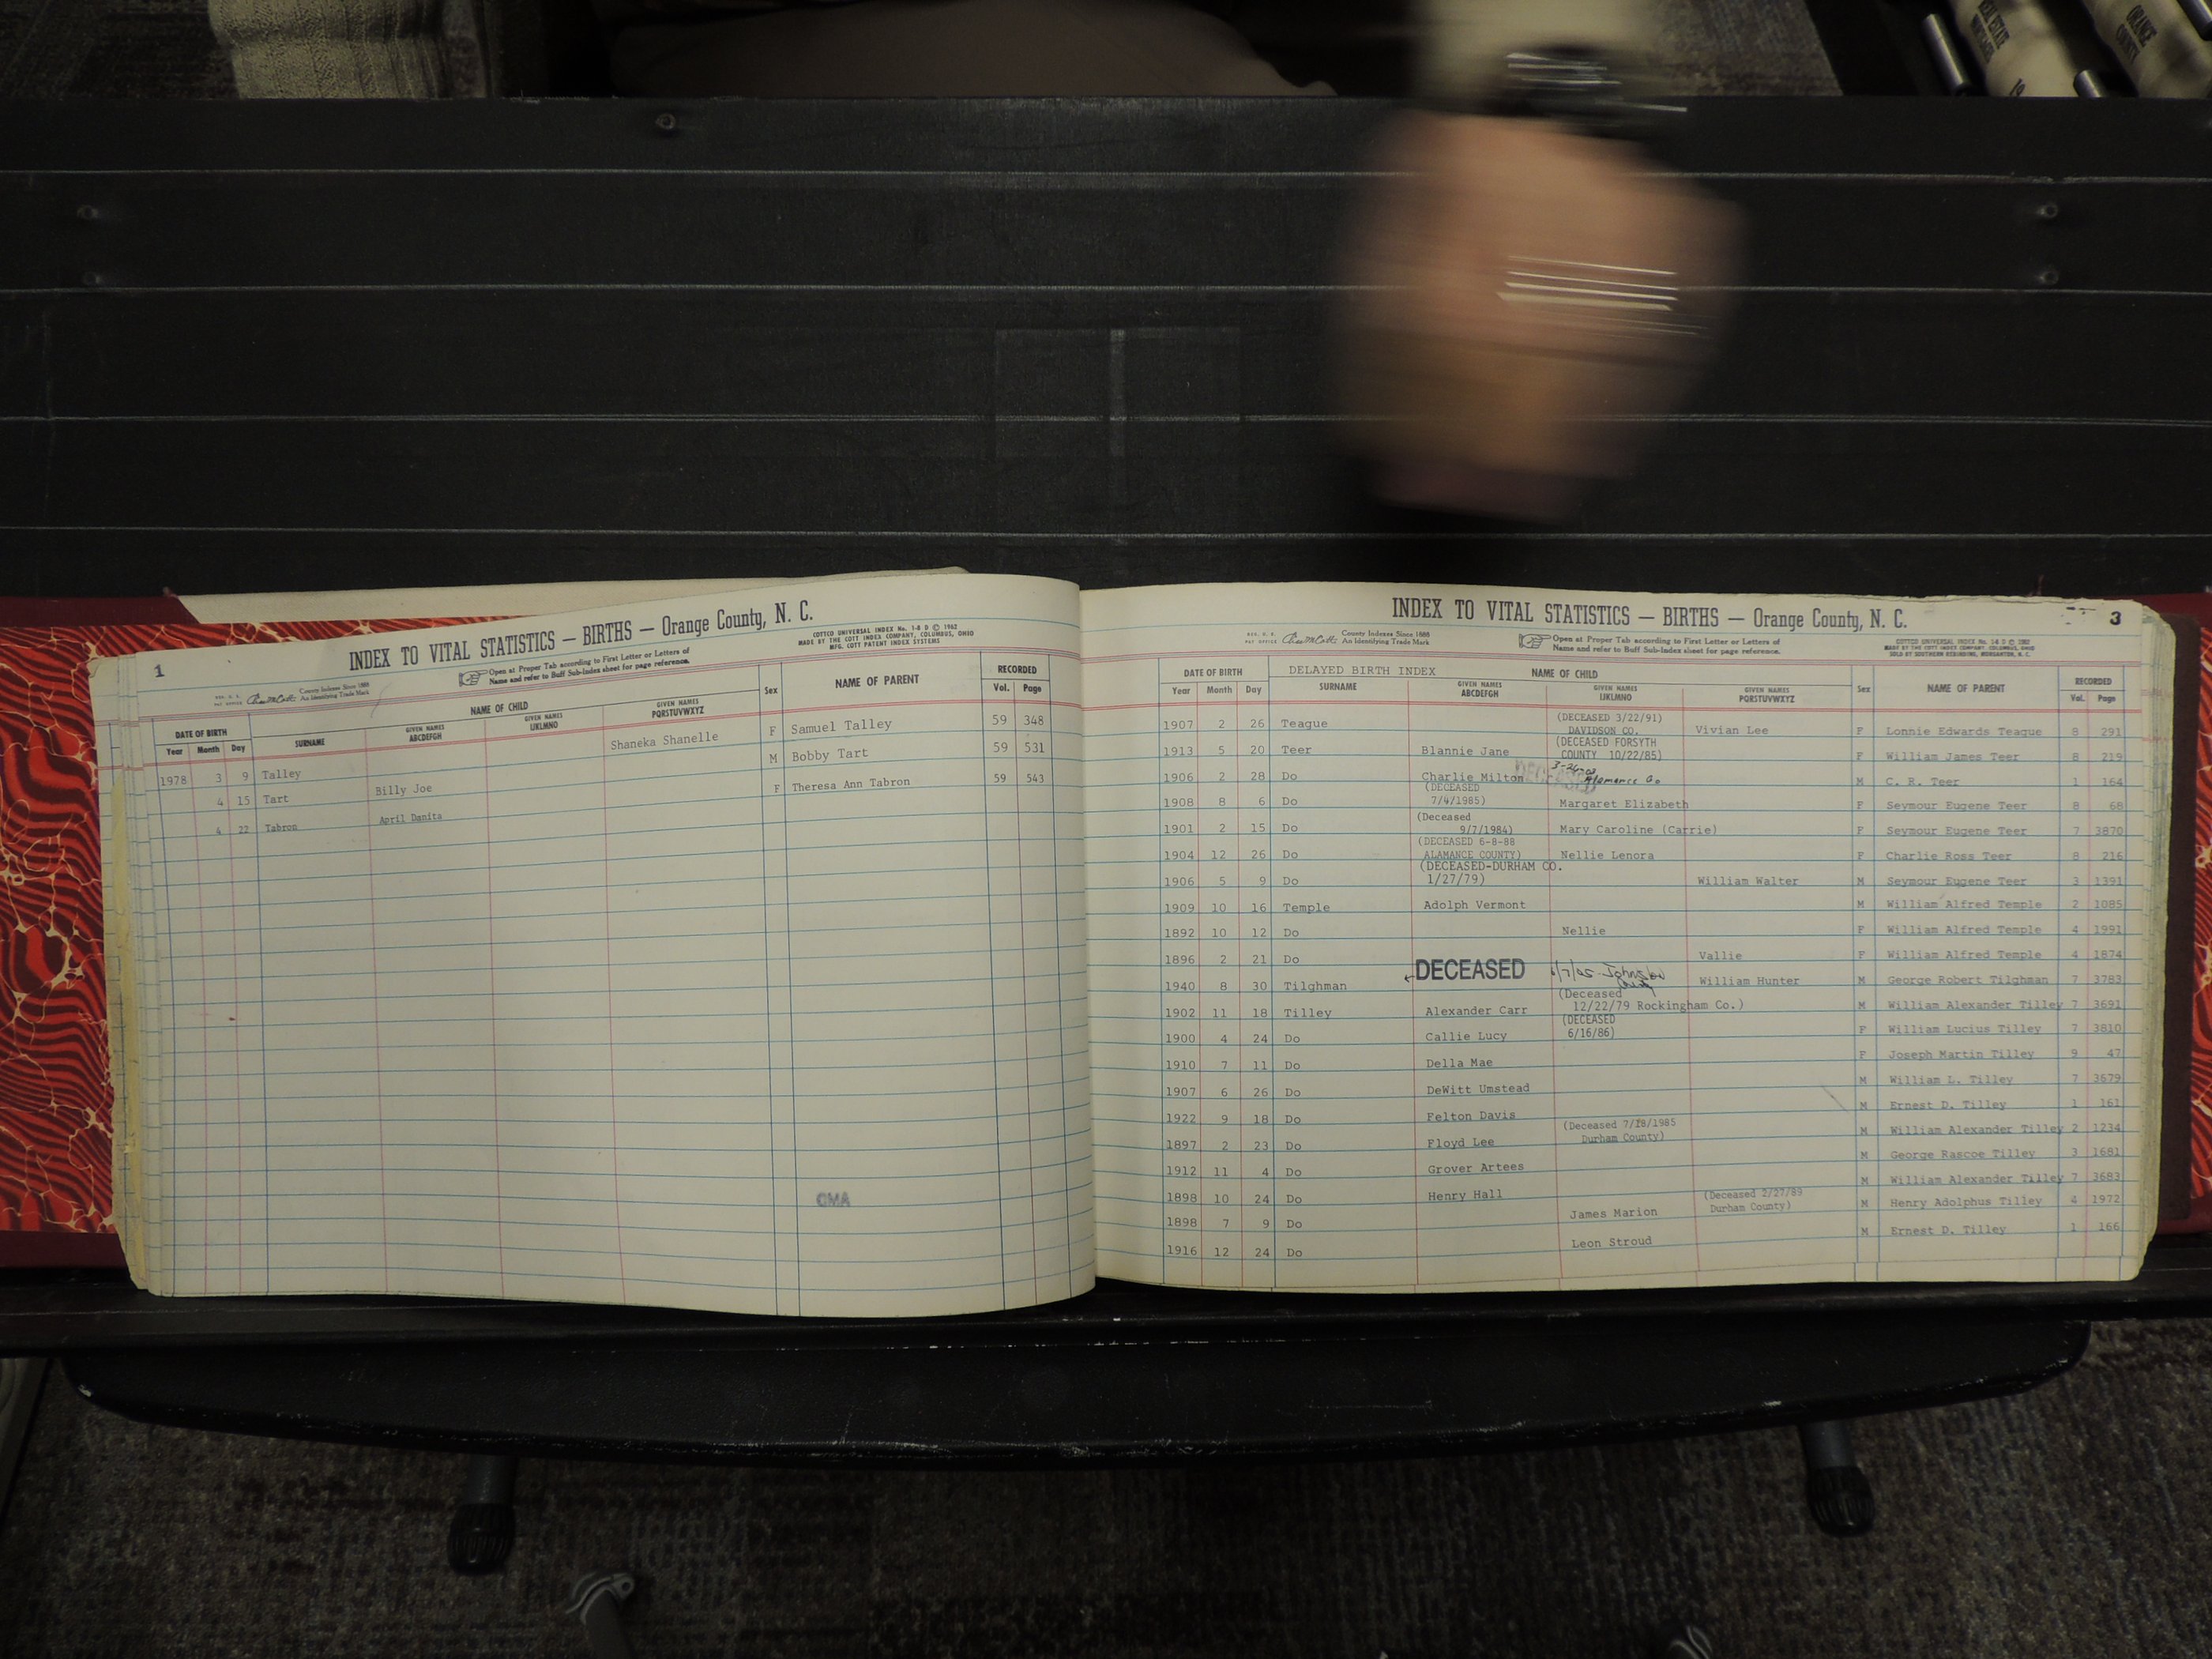 REAL ESTATE
ORANGE
COUNTY
19
1
INDEX TO VITAL STATISTICS — BIRTHS — Orange County, N. C.
COTTCO UNIVERSAL INDEX No. 1-8 D © 1962
MADE BY THE COTT INDEX COMPANY, COLUMBUS, OHIO
MFG. COTT PATENT INDEX SYSTEMS
County Indexes Since 1888
An Identifying Trade Mark
Open at Proper Tab according to First Letter or Letters of
Name and refer to Buff Sub-Index sheet for page reference.
DATE OF BIRTH NAME OF CHILD Sex NAME OF PARENT RECORDED
Year Month Day SURNAME GIVEN NAMES ABCDEFGH GIVEN NAMES IJKLMNO GIVEN NAMES PQRSTUVWXYZ Vol. Page
1978 3 9 Talley Shaneka Shanelle F Samuel Talley 59 348
4 15 Tart Billy Joe M Bobby Tart 59 531
4 22 Tabron April Danita F Theresa Ann Tabron 59 543
GMA
INDEX TO VITAL STATISTICS — BIRTHS — Orange County, N. C. 3
County Indexes Since 1888
An Identifying Trade Mark
Open at Proper Tab according to First Letter or Letters of
Name and refer to Buff Sub-Index sheet for page reference.
COTTCO UNIVERSAL INDEX No. 1-8 D © 1962
MADE BY THE COTT INDEX COMPANY, COLUMBUS, OHIO
SOLD BY SOUTHERN REBINDING, MORGANTON, N. C.
DATE OF BIRTH DELAYED BIRTH INDEX NAME OF CHILD Sex NAME OF PARENT RECORDED
Year Month Day SURNAME GIVEN NAMES ABCDEFGH GIVEN NAMES IJKLMNO GIVEN NAMES PQRSTUVWXYZ Vol. Page
1907 2 26 Teague (DECEASED 3/22/91) DAVIDSON CO. Vivian Lee F Lonnie Edwards Teague 8 291
1913 5 20 Teer Blannie Jane (DECEASED FORSYTH COUNTY 10/22/85) F William James Teer 8 219
1906 2 28 Do Charlie Milton DECEASED Alamance Co M C. R. Teer 1 164
1908 8 6 Do (DECEASED 7/4/1985) Margaret Elizabeth F Seymour Eugene Teer 8 68
1901 2 15 Do (Deceased 9/7/1984) Mary Caroline (Carrie) F Seymour Eugene Teer 7 3870
1904 12 26 Do (DECEASED 6-8-88 ALAMANCE COUNTY) Nellie Lenora F Charlie Ross Teer 8 216
1906 5 9 Do (DECEASED-DURHAM CO. 1/27/79) William Walter M Seymour Eugene Teer 3 1391
1909 10 16 Temple Adolph Vermont M William Alfred Temple 2 1085
1892 10 12 Do Nellie F William Alfred Temple 4 1991
1896 2 21 Do Vallie F William Alfred Temple 4 1874
1940 8 30 Tilghman DECEASED William Hunter M George Robert Tilghman 7 3783
1902 11 18 Tilley Alexander Carr (Deceased 12/22/79 Rockingham Co.) M William Alexander Tilley 7 3691
1900 4 24 Do Callie Lucy (DECEASED 6/16/86) F William Lucius Tilley 7 3810
1910 7 11 Do Della Mae F Joseph Martin Tilley 9 47
1907 6 26 Do DeWitt Umstead M William L. Tilley 7 3679
1922 9 18 Do Felton Davis M Ernest D. Tilley 1 161
1897 2 23 Do Floyd Lee (Deceased 7/18/1985 Durham County) M William Alexander Tilley 2 1234
1912 11 4 Do Grover Artees M George Rascoe Tilley 3 1681
1898 10 24 Do Henry Hall M William Alexander Tilley 7 3683
1898 7 9 Do James Marion (Deceased 2/27/89 Durham County) M Henry Adolphus Tilley 4 1972
1916 12 24 Do Leon Stroud M Ernest D. Tilley 1 166